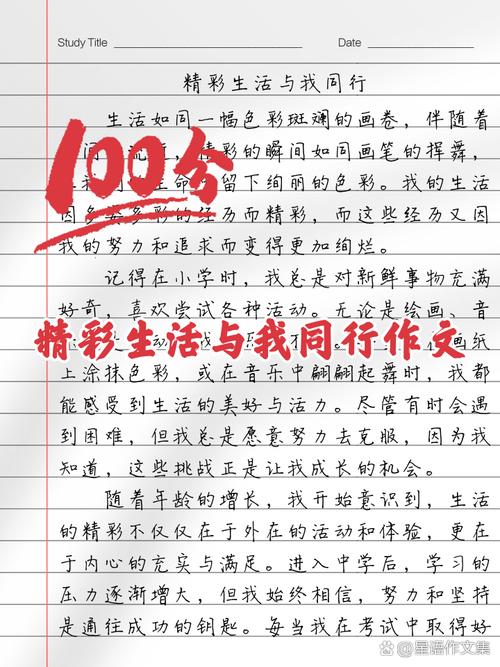 Study Title
Date
精彩生活与我同行
生活如同一幅色彩斑斓的画卷，伴随着
精彩的瞬间如同画笔的挥舞，
留下绚丽的色彩。我的生活
因多姿多彩的经历而精彩，而这些经历又因
我的努力和追求而变得更加绚烂。
100分
记得在小学时，我总是对新鲜事物充满
好奇，喜欢尝试各种活动。无论是绘画、音
精彩生活与我同行作文
画纸
上涂抹色彩，或在音乐中翩翩起舞时，我都
能感受到生活的美好与活力。尽管有时会遇
到困难，但我总是愿意努力去克服，因为我
知道，这些挑战正是让我成长的机会。
随着年龄的增长，我开始意识到，生活
的精彩不仅仅在于外在的活动和体验，更在
于内心的充实与满足。进入中学后，学习的
压力逐渐增大，但我始终相信，努力和坚持
是通往成功的钥匙。每当我在考试中取得好
星语作文集